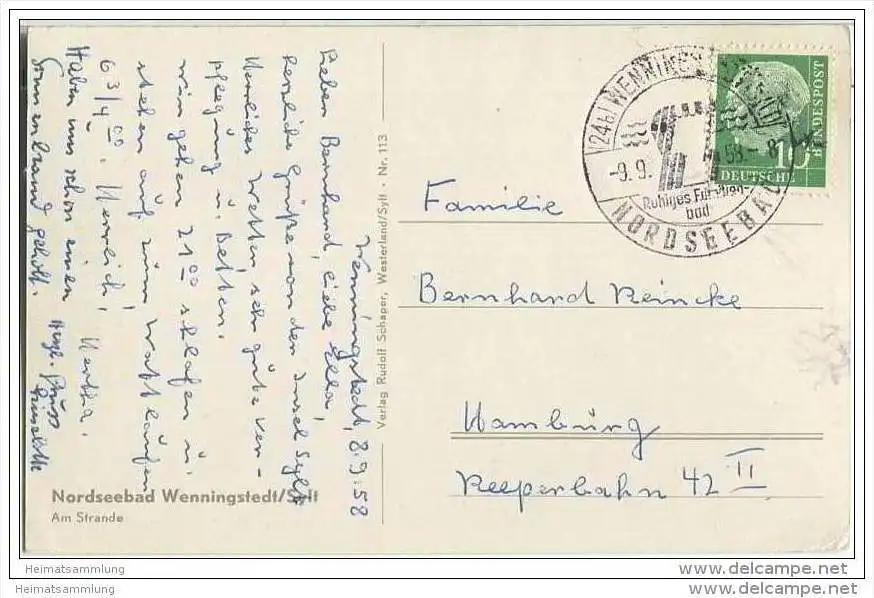 Wenningstedt, 8.9.58
Lieber Bernhard, liebe Ella,
herzliche Grüße von der Insel Sylt
Herrliches Wetter, sehr gute Ver-
pflegung u. Betten.
Wir gehen 21⁰⁰ schlafen u.
stehen auf zum Wattlaufen
6 3/4⁰⁰. Herrlich, Hertha.
Haben uns schon einen
Sonnenbrand geholt.
Herzl. Gruss
Nordseebad Wenningstedt/Sylt
Am Strande
Verlag Rudolf Schaper, Westerland/Sylt · Nr. 113
(24b) WENNINGSTEDT (SYLT)
-9.9.58.-8
Ruhiges Familien-
bad
NORDSEEBAD
10
DEUTSCHE
BUNDESPOST
Familie
Bernhard Reincke
Hamburg
Reeperbahn 42 II
Heimatsammlung
www.delcampe.net
Heimatsammlung
www.delcampe.net